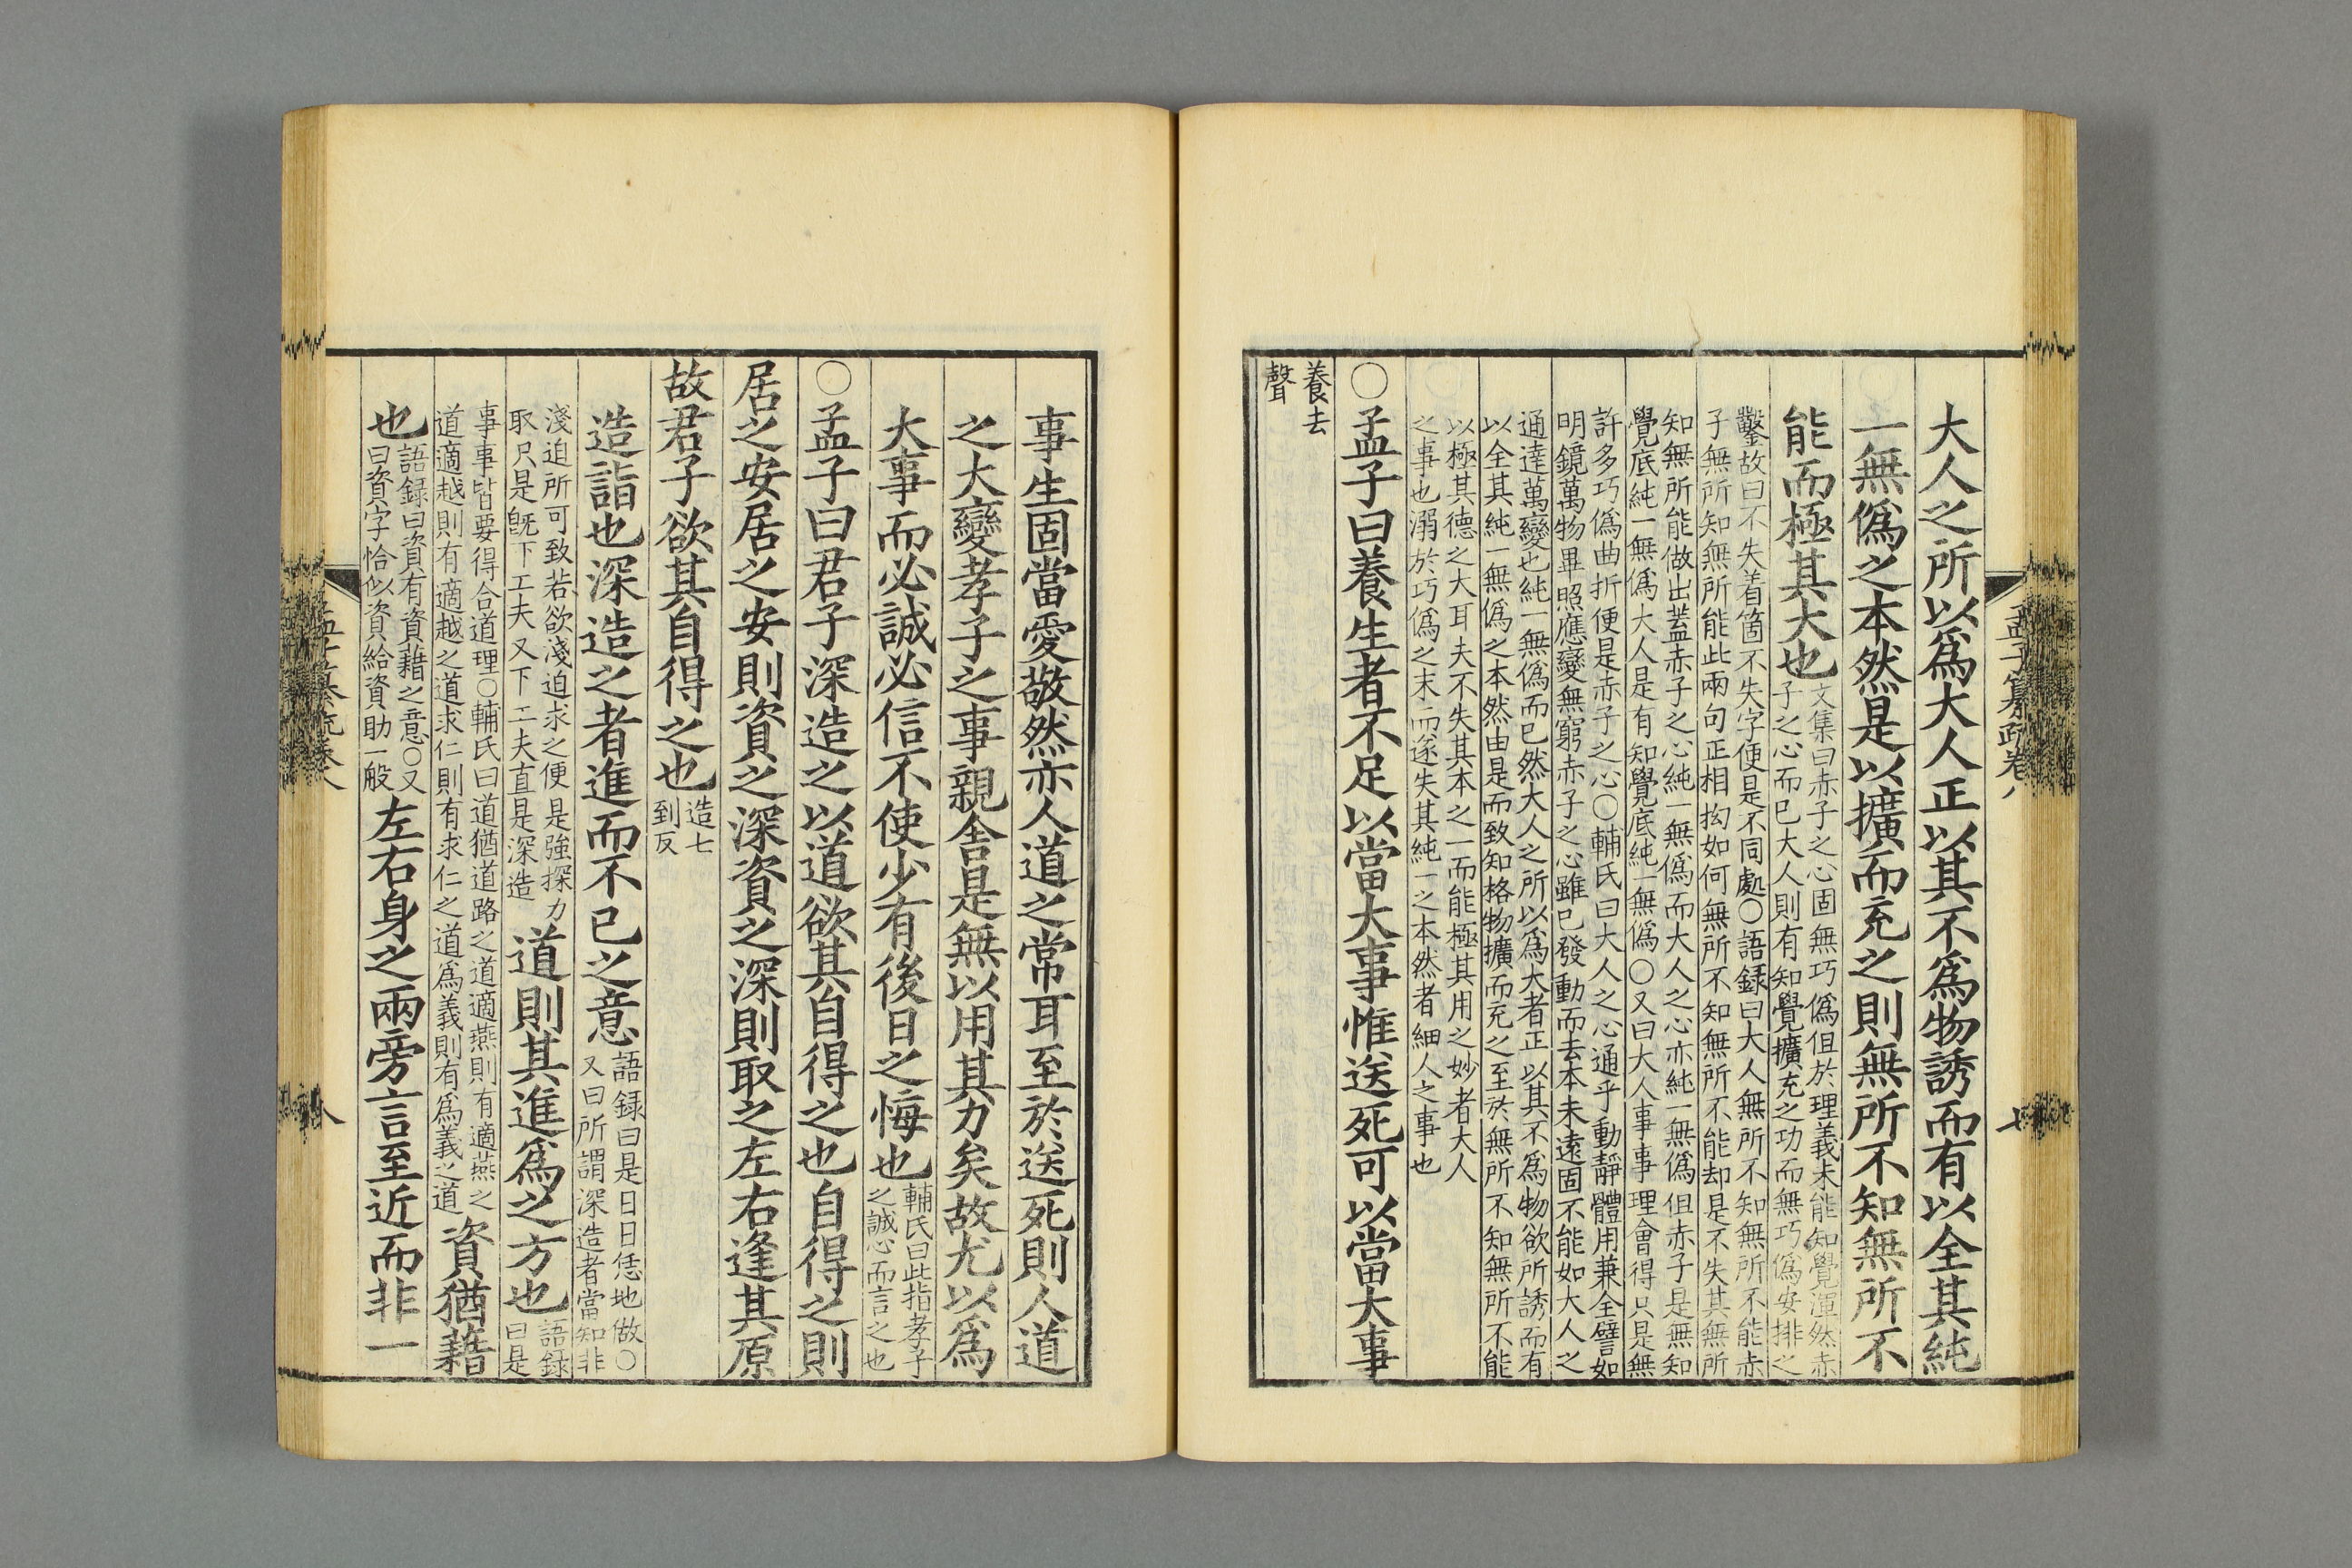 大人之所以爲大人正以其不爲物誘而有以全其純
一無僞之本然是以擴而充之則無所不知無所不
能而極其大也
文集曰赤子之心固無巧僞但於理義未能知覺渾然赤
子之心而已大人則有知覺擴充之功而無巧僞安排之
鑿故曰不失着箇不失字便是不同處〇語録曰大人無所不知無所不能赤
子無所知無所能此兩句正相拗如何無所不知無所不能却是不失其無所
知無所能做出蓋赤子之心純一無僞而大人之心亦純一無僞但赤子是無知
覺底純一無僞大人是有知覺底純一無僞〇又曰大人事事理會得只是無
許多巧僞曲折便是赤子之心〇輔氏曰大人之心通乎動靜體用兼全譬如
明鏡萬物畢照應變無窮赤子之心雖已發動而去本未遠固不能如大人之
通達萬變也純一無僞而已然大人之所以爲大者正以其不爲物欲所誘而有
以全其純一無僞之本然由是而致知格物擴而充之至於無所不知無所不能
以極其德之大耳夫不失其本之一而能極其用之妙者大人
之事也溺於巧僞之末而遂失其純一之本然者細人之事也
〇孟子曰養生者不足以當大事惟送死可以當大事
養去
聲
孟子纂疏卷八
七
事生固當愛敬然亦人道之常耳至於送死則人道
之大變孝子之事親舍是無以用其力矣故尤以爲
大事而必誠必信不使少有後日之悔也
輔氏曰此指孝子
之誠心而言之也
〇孟子曰君子深造之以道欲其自得之也自得之則
居之安居之安則資之深資之深則取之左右逢其原
故君子欲其自得之也
造七
到反
造詣也深造之者進而不已之意
語録曰是日日恁地做〇
又曰所謂深造者當知非
淺迫所可致若欲淺迫求之便是強探力
取只是旣下工夫又下工夫直是深造
道則其進爲之方也
語録
曰是
事事皆要得合道理〇輔氏曰道猶道路之道適燕則有適燕之
道適越則有適越之道求仁則有求仁之道爲義則有爲義之道
資猶藉
也
語録曰資有資藉之意〇又
曰資字恰似資給資助一般
左右身之兩旁言至近而非一
八